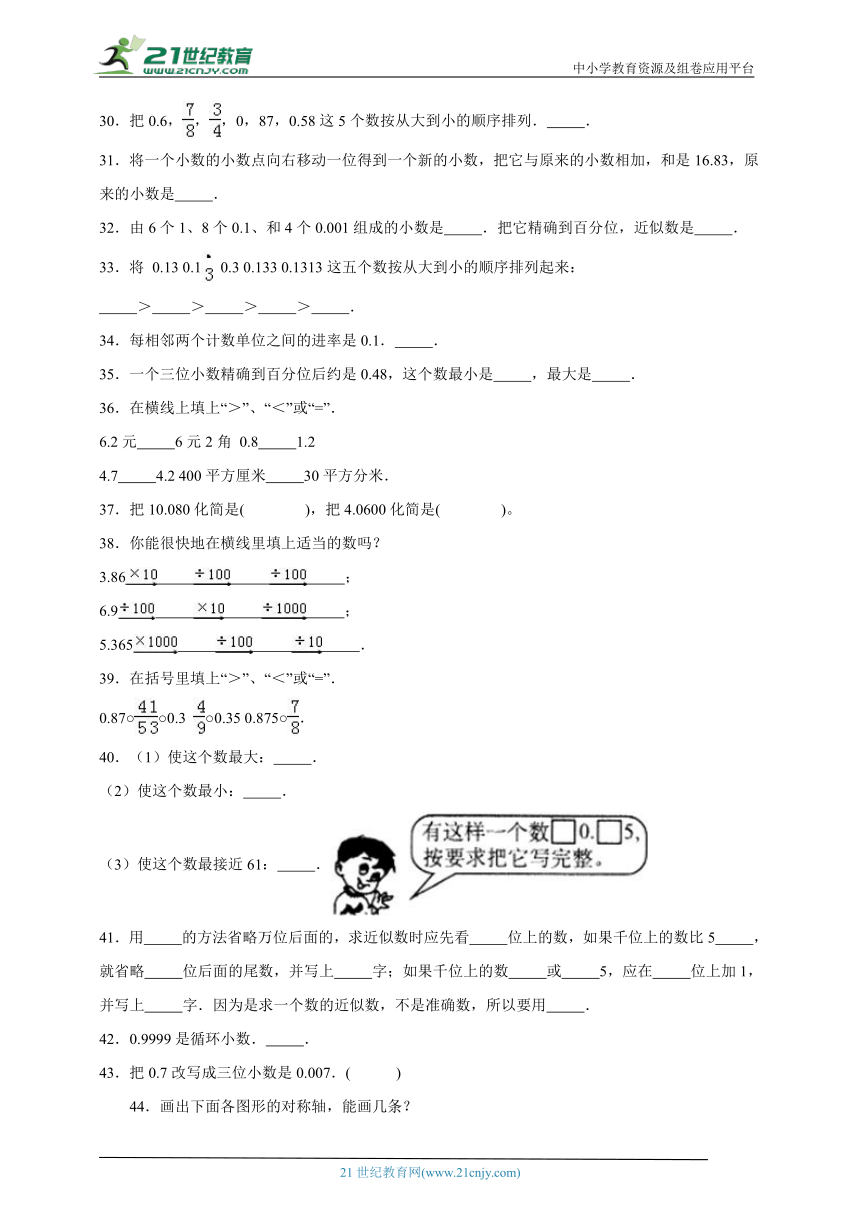 21世纪教育
www.21cnjy.com
中小学教育资源及组卷应用平台
30.把 0.6, 7/8, 3/4, 0, 87, 0.58 这 5 个数按从大到小的顺序排列._____.
31.将一个小数的小数点向右移动一位得到一个新的小数,把它与原来的小数相加,和是 16.83,原
来的小数是_____.
32.由 6 个 1、8 个 0.1、和 4 个 0.001 组成的小数是_____.把它精确到百分位,近似数是_____.
33.将 0.13 0.13̇ 0.3 0.133 0.1313 这五个数按从大到小的顺序排列起来:
_____>_____>_____>_____>_____.
34.每相邻两个计数单位之间的进率是 0.1._____.
35.一个三位小数精确到百分位后约是 0.48,这个数最小是_____,最大是_____.
36.在横线上填上“>”、“<”或“=”.
6.2 元_____6 元 2 角 0.8_____1.2
4.7_____4.2 400 平方厘米_____30 平方分米.
37.把 10.080 化简是( ),把 4.0600 化简是( )。
38.你能很快地在横线里填上适当的数吗?
3.86 ×10 _____ ÷100 _____ ÷100 _____;
6.9 ÷100 _____ ×10 _____ ÷1000 _____;
5.365 ×1000 _____ ÷100 _____ ÷10 _____.
39.在括号里填上“>”、“<”或“=”.
0.87○41/53○0.3 4/9○0.35 0.875○7/8.
40.(1)使这个数最大:_____.
(2)使这个数最小:_____.
有这样一个数□0.□5,
按要求把它写完整。
(3)使这个数最接近 61:_____.
41.用_____的方法省略万位后面的,求近似数时应先看_____位上的数,如果千位上的数比 5_____,
就省略_____位后面的尾数,并写上_____字;如果千位上的数_____或_____5,应在_____位上加 1,
并写上_____字.因为是求一个数的近似数,不是准确数,所以要用_____.
42.0.9999 是循环小数._____.
43.把 0.7 改写成三位小数是 0.007.( )
44.画出下面各图形的对称轴,能画几条?
21 世纪教育网(www.21cnjy.com)